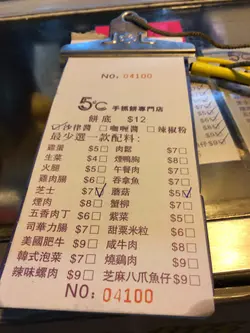 NO: 04100
5℃ 手抓餅專門店
餅底 $12
☑沙律醬 □咖喱醬 □辣椒粉
最少選一款配料:
雞蛋 $5□ 肉鬆 $7□
生菜 $4□ 煙鴨胸 $8□
火腿 $5□ 午餐肉 $7□
雞肉腸 $6□ 吞拿魚 $7□
芝士 $7☑ 蘑菇 $5☑
煙肉 $8□ 蟹柳 $7□
五香肉丁 $6□ 紫菜 $5□
司華力腸 $7□ 甜粟米粒 $6□
美國肥牛 $9□ 咸牛肉 $9□
韓式泡菜 $7□ 燒鷄肉 $9□
辣味螺肉 $9□ 芝麻八爪魚仔 $9□
NO: 04100